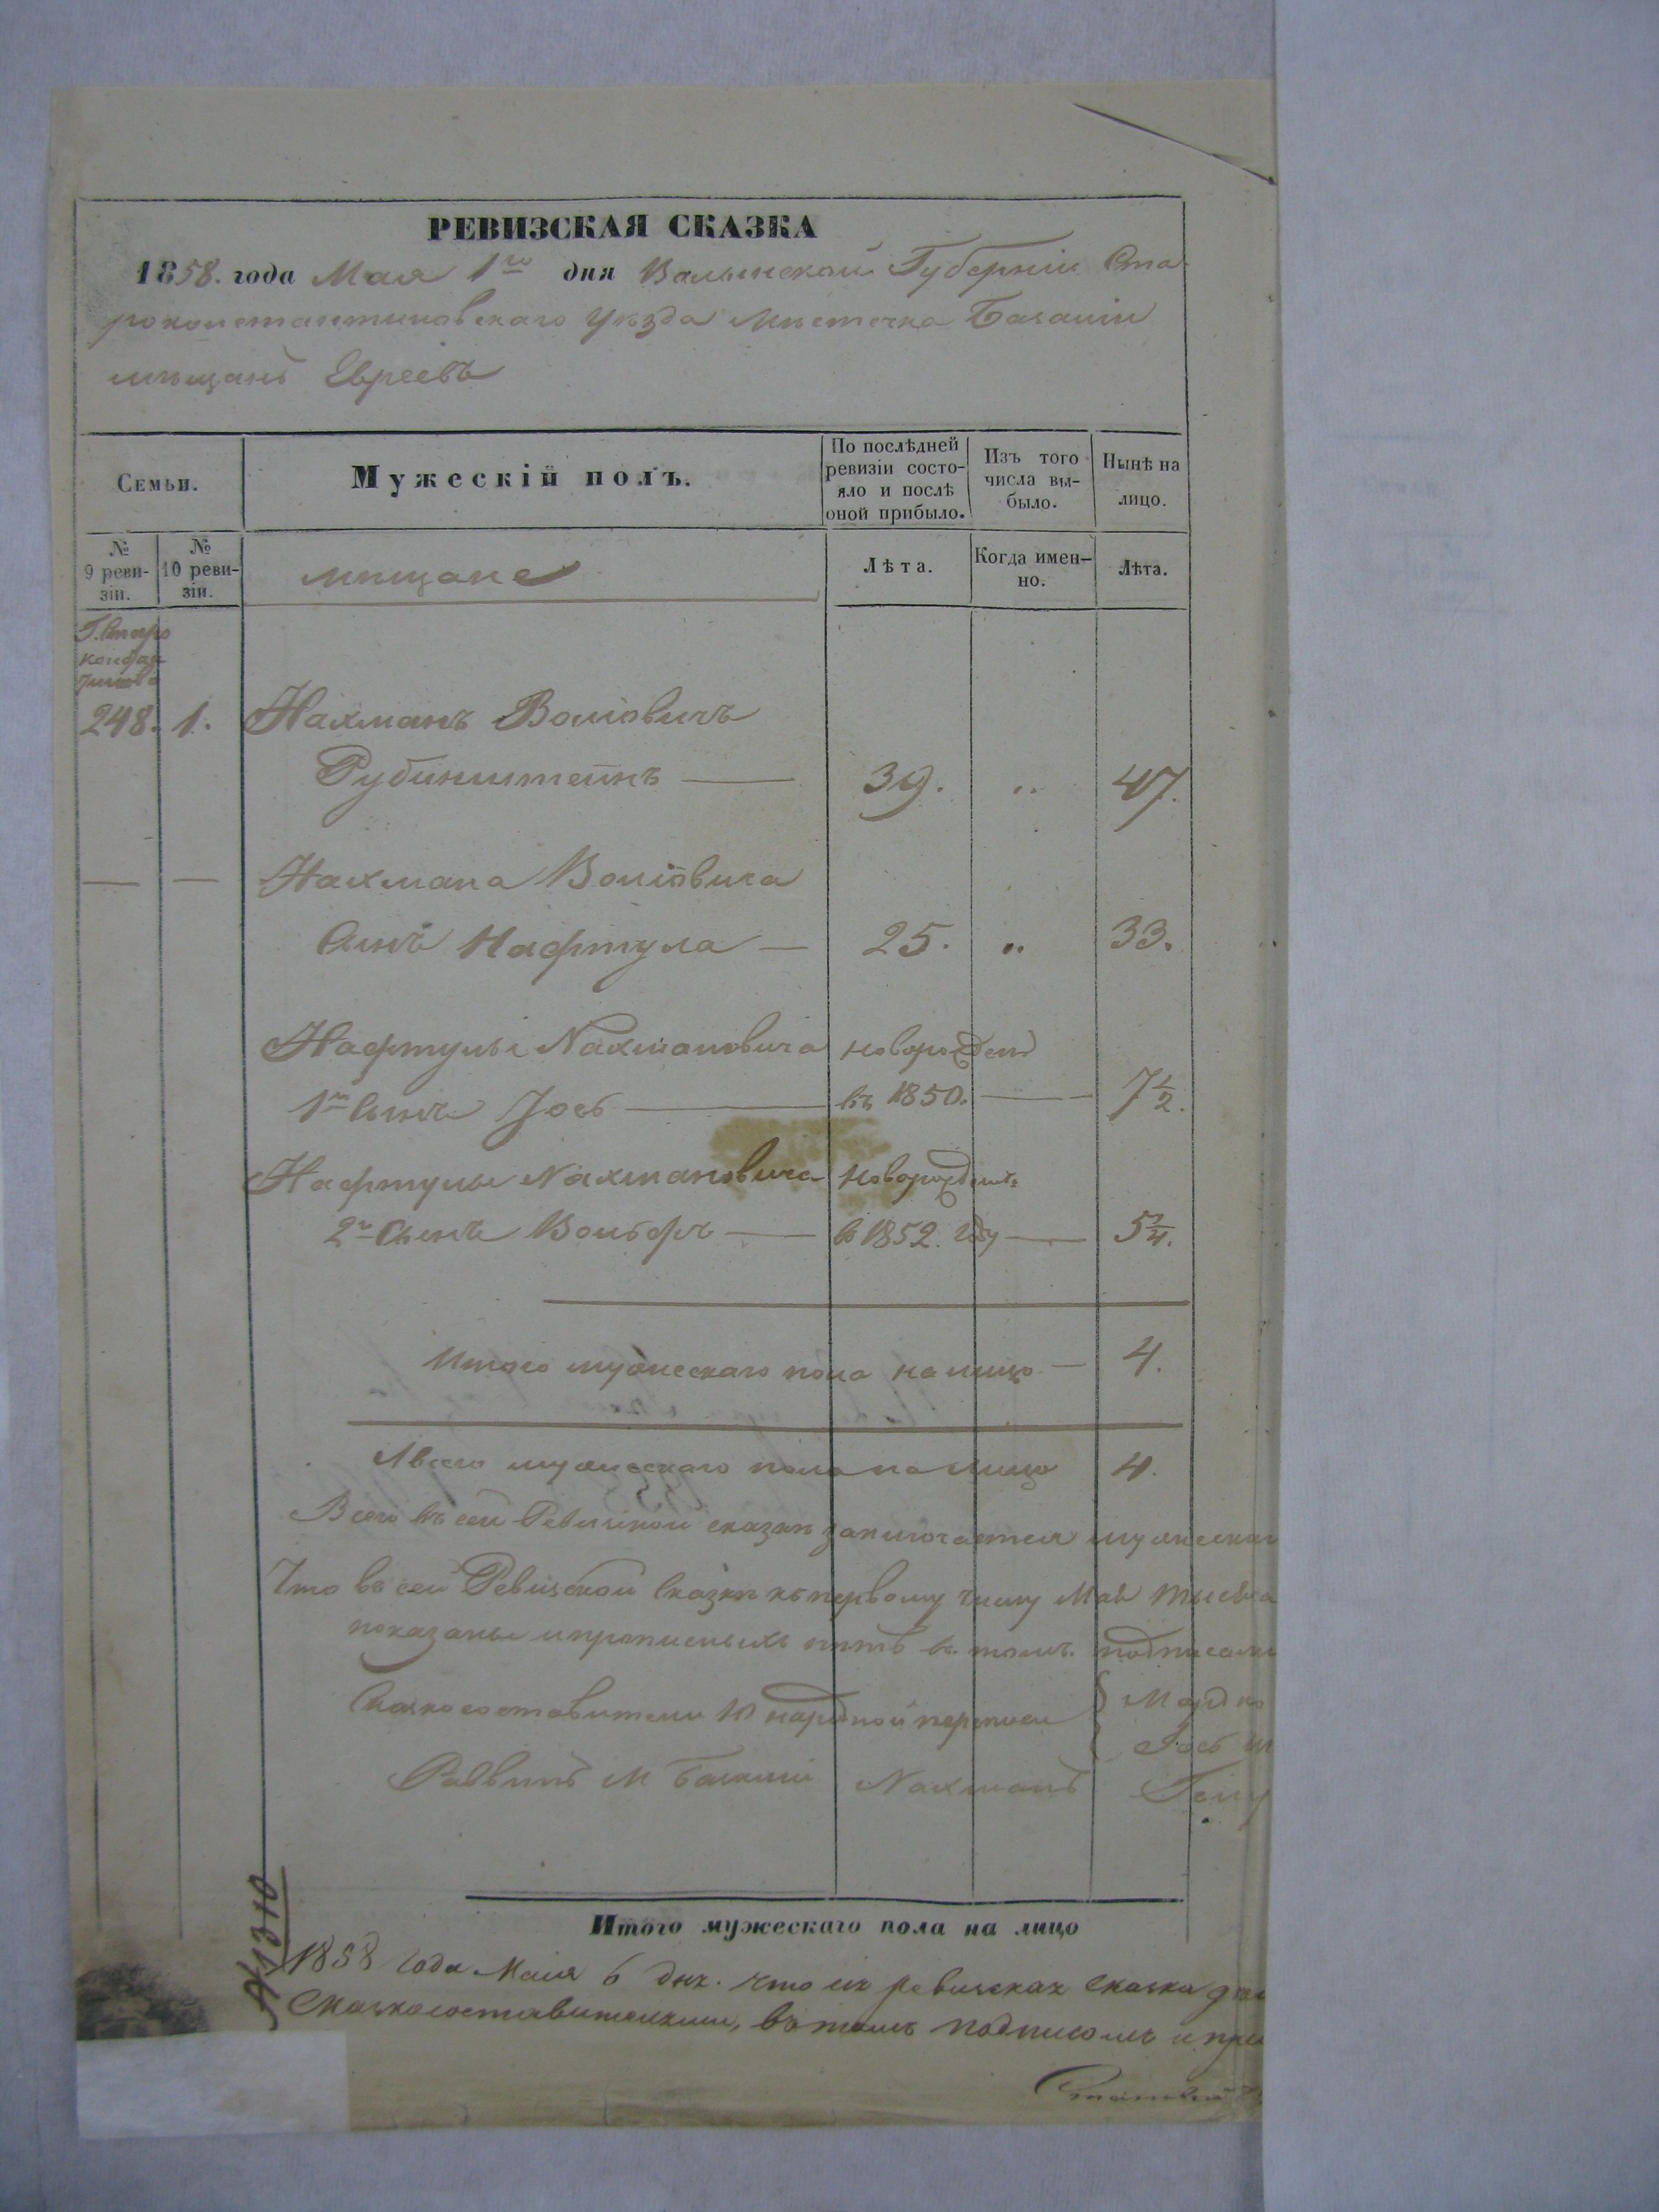 РЕВИЗСКАЯ СКАЗКА
1858. года Мая 1го дня Волынской Губернiи Ста-
роконстантиновскаго Уѣзда Мѣстечка Базалiи
мѣщанъ Евреевъ
Семьи.
Мужескiй полъ.
По послѣдней ревизiи состо-
яло и послѣ оной прибыло.
Изъ того числа вы-
было.
Нынѣ на лицо.
№ 9 реви-
зiи.
№ 10 реви-
зiи.
мѣщане
Лѣта.
Когда имен-
но.
Лѣта.
Г. Старо
248. 1. Нахманъ Волiовичъ
Рубинштейнъ — 39. „ 47.
— — Нахмана Волiовича
Сынъ Нафтула — 25. „ 33.
Нафтулы Нахмановича новорожденъ
1й Сынъ Iось — въ 1850. — 7 1/2.
Нафтулы Нахмановича новорожденъ
2й Сынъ Вольфъ — в 1852. году — 5 1/4.
Итого мужескаго пола на лицо — 4.
А всего мужескаго пола на лицо 4.
Всего въ сей Ревизской сказкѣ заключается
Что въ сей Ревизской Сказкѣ къ первому числу Мая
показаны и прописныхъ нѣтъ в. томъ. подписали
Сказкосоставители 10 народной переписи { Мордко
Iось
Раввинъ М Нахманъ
Итого мужескаго пола на лицо
1858 года Маiя 6 дня. что сiя ревизская сказка
Сказкосоставителями, въ томъ подписомъ и